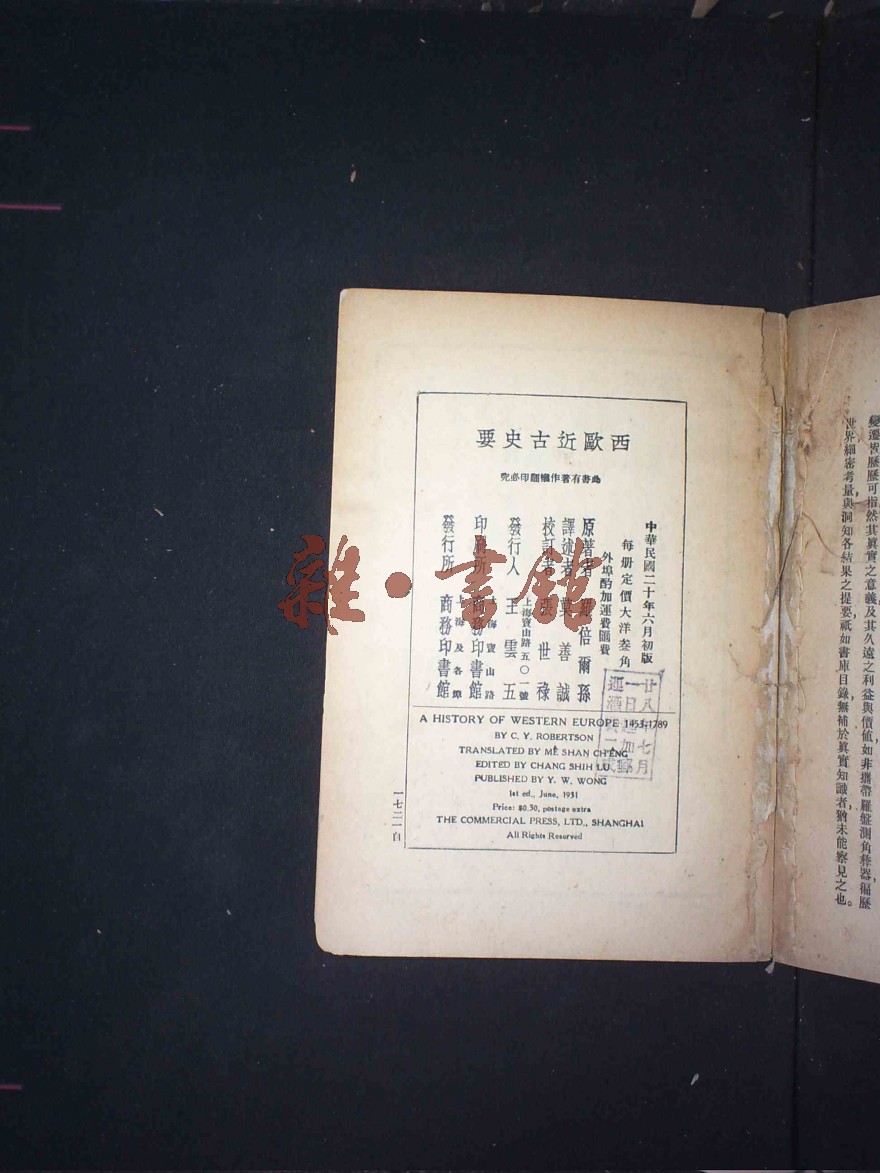 西歐近古史要
此書有著作權翻印必究
中華民國二十年六月初版
每册定價大洋叁角
外埠酌加運費匯費
原著者 羅倍爾孫
譯述者 莫善誠
校訂者 張世祿
發行人 王雲五
上海寶山路五〇一號
印刷所 商務印書館
上海寶山路
發行所 商務印書館
上海及各埠
A HISTORY OF WESTERN EUROPE 1453-1789
BY C. Y. ROBERTSON
TRANSLATED BY ME SHAN CH'ENG
EDITED BY CHANG SHIH LU
PUBLISHED BY Y. W. WONG
1st ed., June, 1931
Price: $0.30, postage extra
THE COMMERCIAL PRESS, LTD., SHANGHAI
All Rights Reserved
一七二一自
廿八年七月
一日
雜·書館
變遷皆歷歷可指然其眞實之意義及其久遠之利益與價値，如非攜帶羅盤測角種器徧歷
世界細密考量，與洞知各結果之提要祇如書庫目錄無補於眞實知識者，猶未能察見之也。